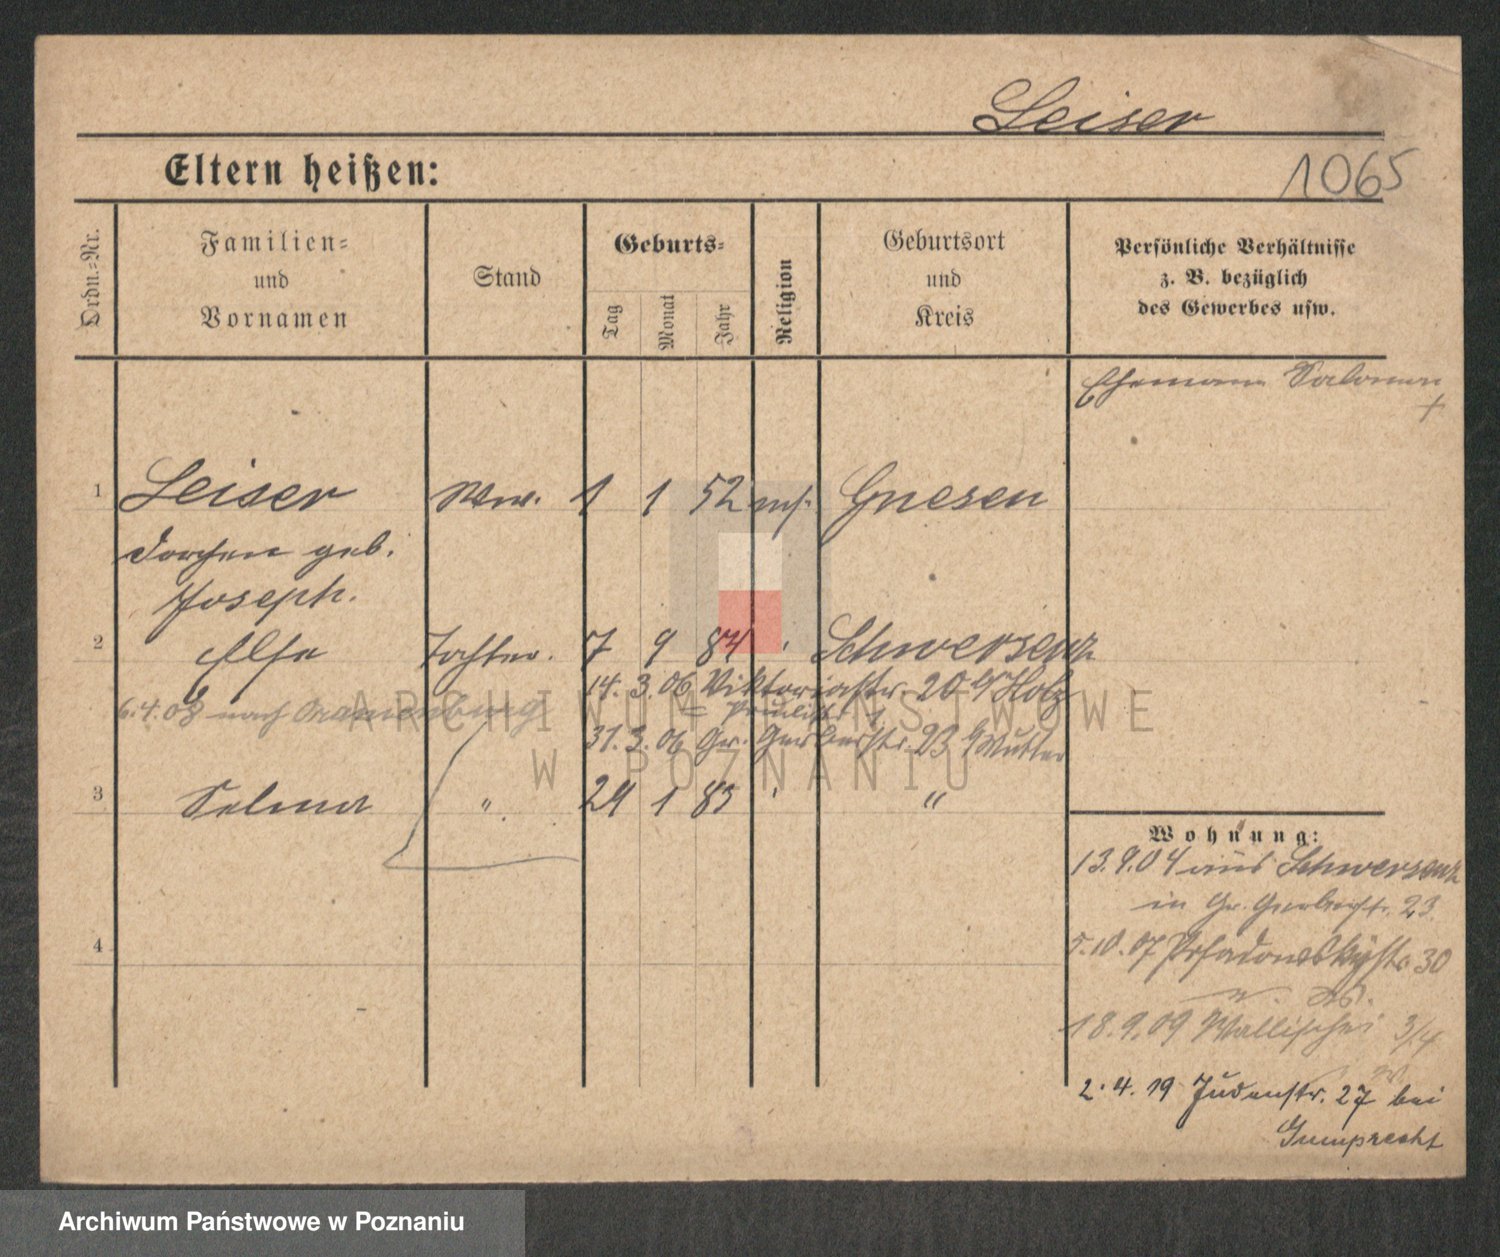 Leiser
1065
Eltern heißen:
Ordn.=Nr.
Familien=
und
Vornamen
Stand
Geburts=
Tag
Monat
Jahr
Religion
Geburtsort
und
Kreis
Persönliche Verhältnisse
z. B. bezüglich
des Gewerbes usw.
Ehemann Salomon
+
1 Leiser Ww. 1 1 52 mos. Gnesen
Dorchen geb.
Joseph.
2 Else Tochter. 7 9 84 " Schwersenz
14. 3. 06 Viktoriastr. 20 b/ Holz
6.4.08 nach Oranienburg
31. 3. 06 Gr. Gerberstr. 23 b/ Mutter
3 Selma " 24 1 83 " "
4
Wohnung:
13.9.04 aus Schwersenz
in Gr. Gerberstr. 23.
5.10.07 Posadowskystr. 30
18.9.09 Wallischei 3/4
2.4.19 Judenstr. 27 bei
Gumprecht
ARCHIWUM PAŃSTWOWE
W POZNANIU
Archiwum Państwowe w Poznaniu